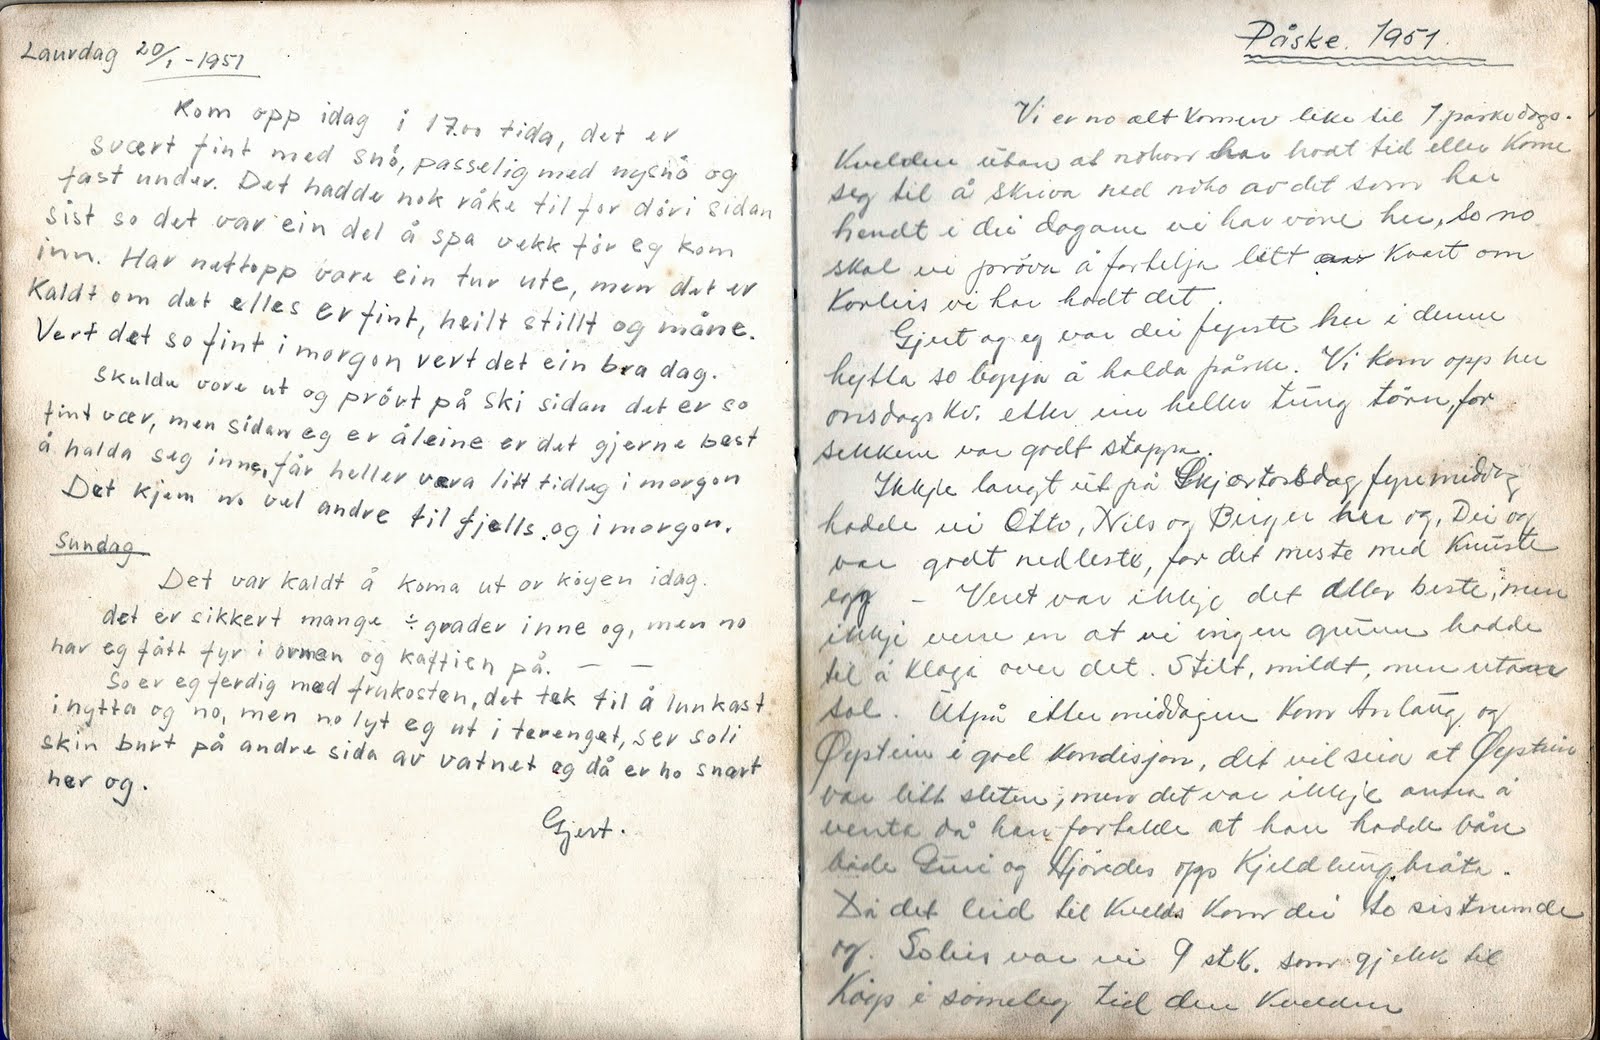 Laurdag 20/1 - 1951
Kom opp idag i 17.00 tida, det er
svært fint med snö, passelig med nysnö og
fast under. Det hadde nok råke til for döri sidan
sist so det var ein del å spa vekk för eg kom
inn. Har nettopp vore ein tur ute, men det er
Kaldt om det elles er fint, heilt stillt og måne.
Vert det so fint i morgon vert det ein bra dag.
Skulde vore ut og prövt på ski sidan det er so
fint vær, men sidan eg er åleine er det gjerne best
å halda seg inne, får heller vera litt tidleg i morgon
Det kjem no vel andre til fjells og i morgon.
Sundag
Det var kaldt å koma ut or köyen idag.
det er sikkert mange ÷ grader inne og, men no
har eg fått fyr i omnen og kaffien på. — —
So er eg ferdig med frukosten, det tek til å lunkast
i hytta og no, men no lyt eg ut i terenget, ser soli
skin burt på andre sida av vatnet og då er ho snart
her og.
Gjert.
Påske. 1951.
Vi er no alt komen like til 1. påskedags-
kvelden utan at nokon har hadt tid eller kome
seg til å skriva ned noko av det som har
hendt i dei dagane vi har vore her, so no
skal vi pröva å fortelja litt Kvart om
Korleis vi har hadt det.
Gjert og eg var dei fyrste her i denne
hytta so byrja å halda påske. Vi kom opp her
onsdags kv. etter ein heller tung törn, for
sekkene var godt stappa.
Ikkje langt ut på Skjærtorsdag fyremiddag
hadde vi Otto, Nils og Birger her og. Dei og
var godt nedlesté, for det meste med Knuste
egg — Veret var ikkje det aller beste, men
ikkje verre en at vi ingen grunn hadde
til å klaga over det. Stilt, mildt, men utan
sol. Utpå ettermiddagen kom Anlaug og
Öystein i god kondisjon, det vil seia at Öystein
var litt sleten, men det var ikkje anna å
venta då han fortalde at han hadde bore
både Guri og Hjördis opp Kjeldhaug bråta.
Då det leid til kvelds kom dei to sistnemde
og. Soleis var vi 9 stk. som gjekk til
Köys i sömeleg tid den kvelden